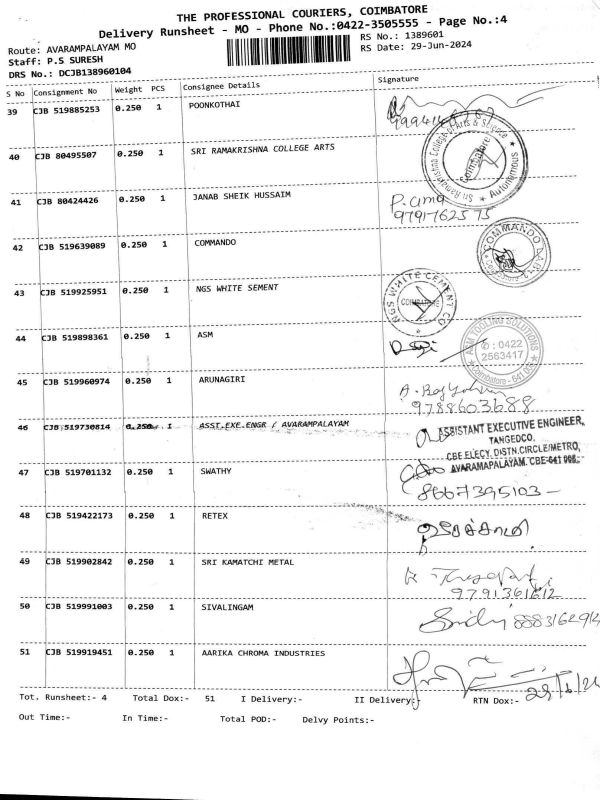 THE PROFESSIONAL COURIERS, COIMBATORE
Delivery Runsheet - MO - Phone No.:0422-3505555 - Page No.:4
Route: AVARAMPALAYAM MO
RS No.: 1389601
Staff: P.S SURESH
RS Date: 29-Jun-2024
DRS No.: DCJB138960104
S No Consignment No Weight PCS Consignee Details Signature
39 CJB 519885253 0.250 1 POONKOTHAI
40 CJB 80495507 0.250 1 SRI RAMAKRISHNA COLLEGE ARTS
Sri Ramakrishna College of Arts & Science
Coimbatore
★ Autonomous ★
41 CJB 80424426 0.250 1 JANAB SHEIK HUSSAIM
P. uma
9791762575
42 CJB 519639089 0.250 1 COMMANDO
COMMANDO
43 CJB 519925951 0.250 1 NGS WHITE SEMENT
NGS WHITE CEMENT CO
COIMBATORE
44 CJB 519898361 0.250 1 ASM
ASM TOOLING SOLUTIONS
✆ : 0422
2563417
45 CJB 519960974 0.250 1 ARUNAGIRI
9788603688
46 CJB 519730814 0.250 1 ASST.EXE.ENGR / AVARAMPALAYAM
ASSISTANT EXECUTIVE ENGINEER,
TANGEDCO.
CBE ELECY. DISTN.CIRCLE/METRO,
AVARAMAPALAYAM. CBE-641 006.
47 CJB 519701132 0.250 1 SWATHY
8667395103 -
48 CJB 519422173 0.250 1 RETEX
49 CJB 519902842 0.250 1 SRI KAMATCHI METAL
9791361612
50 CJB 519991003 0.250 1 SIVALINGAM
51 CJB 519919451 0.250 1 AARIKA CHROMA INDUSTRIES
Tot. Runsheet:- 4 Total Dox:- 51 I Delivery:- II Delivery:- RTN Dox:-
29/6/24
Out Time:- In Time:- Total POD:- Delvy Points:-